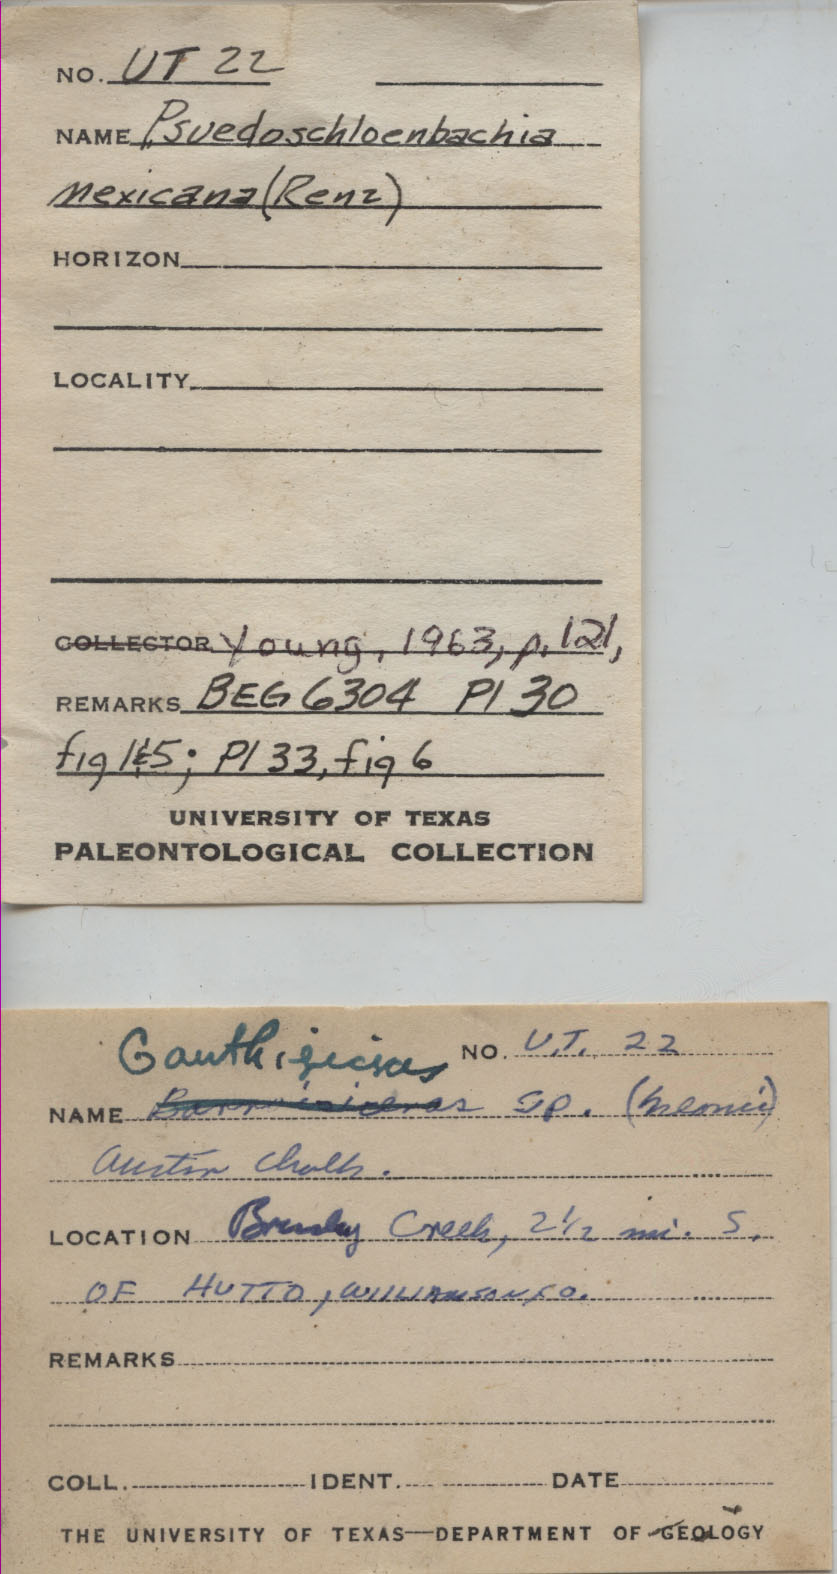 NO. UT 22
NAME Psuedoschloenbachia
mexicana (Renz)
HORIZON
LOCALITY
COLLECTOR Young, 1963, p. 121,
REMARKS BEG 6304 Pl 30
fig 1&5; Pl 33, fig 6
UNIVERSITY OF TEXAS
PALEONTOLOGICAL COLLECTION
NO. U.T. 22
NAME Barroisiceras sp.
Austin Chalk.
LOCATION Brushy Creek, 2 1/2 mi. S.
OF HUTTO, WILLIAMSON CO.
REMARKS
COLL. IDENT. DATE
THE UNIVERSITY OF TEXAS—DEPARTMENT OF GEOLOGY